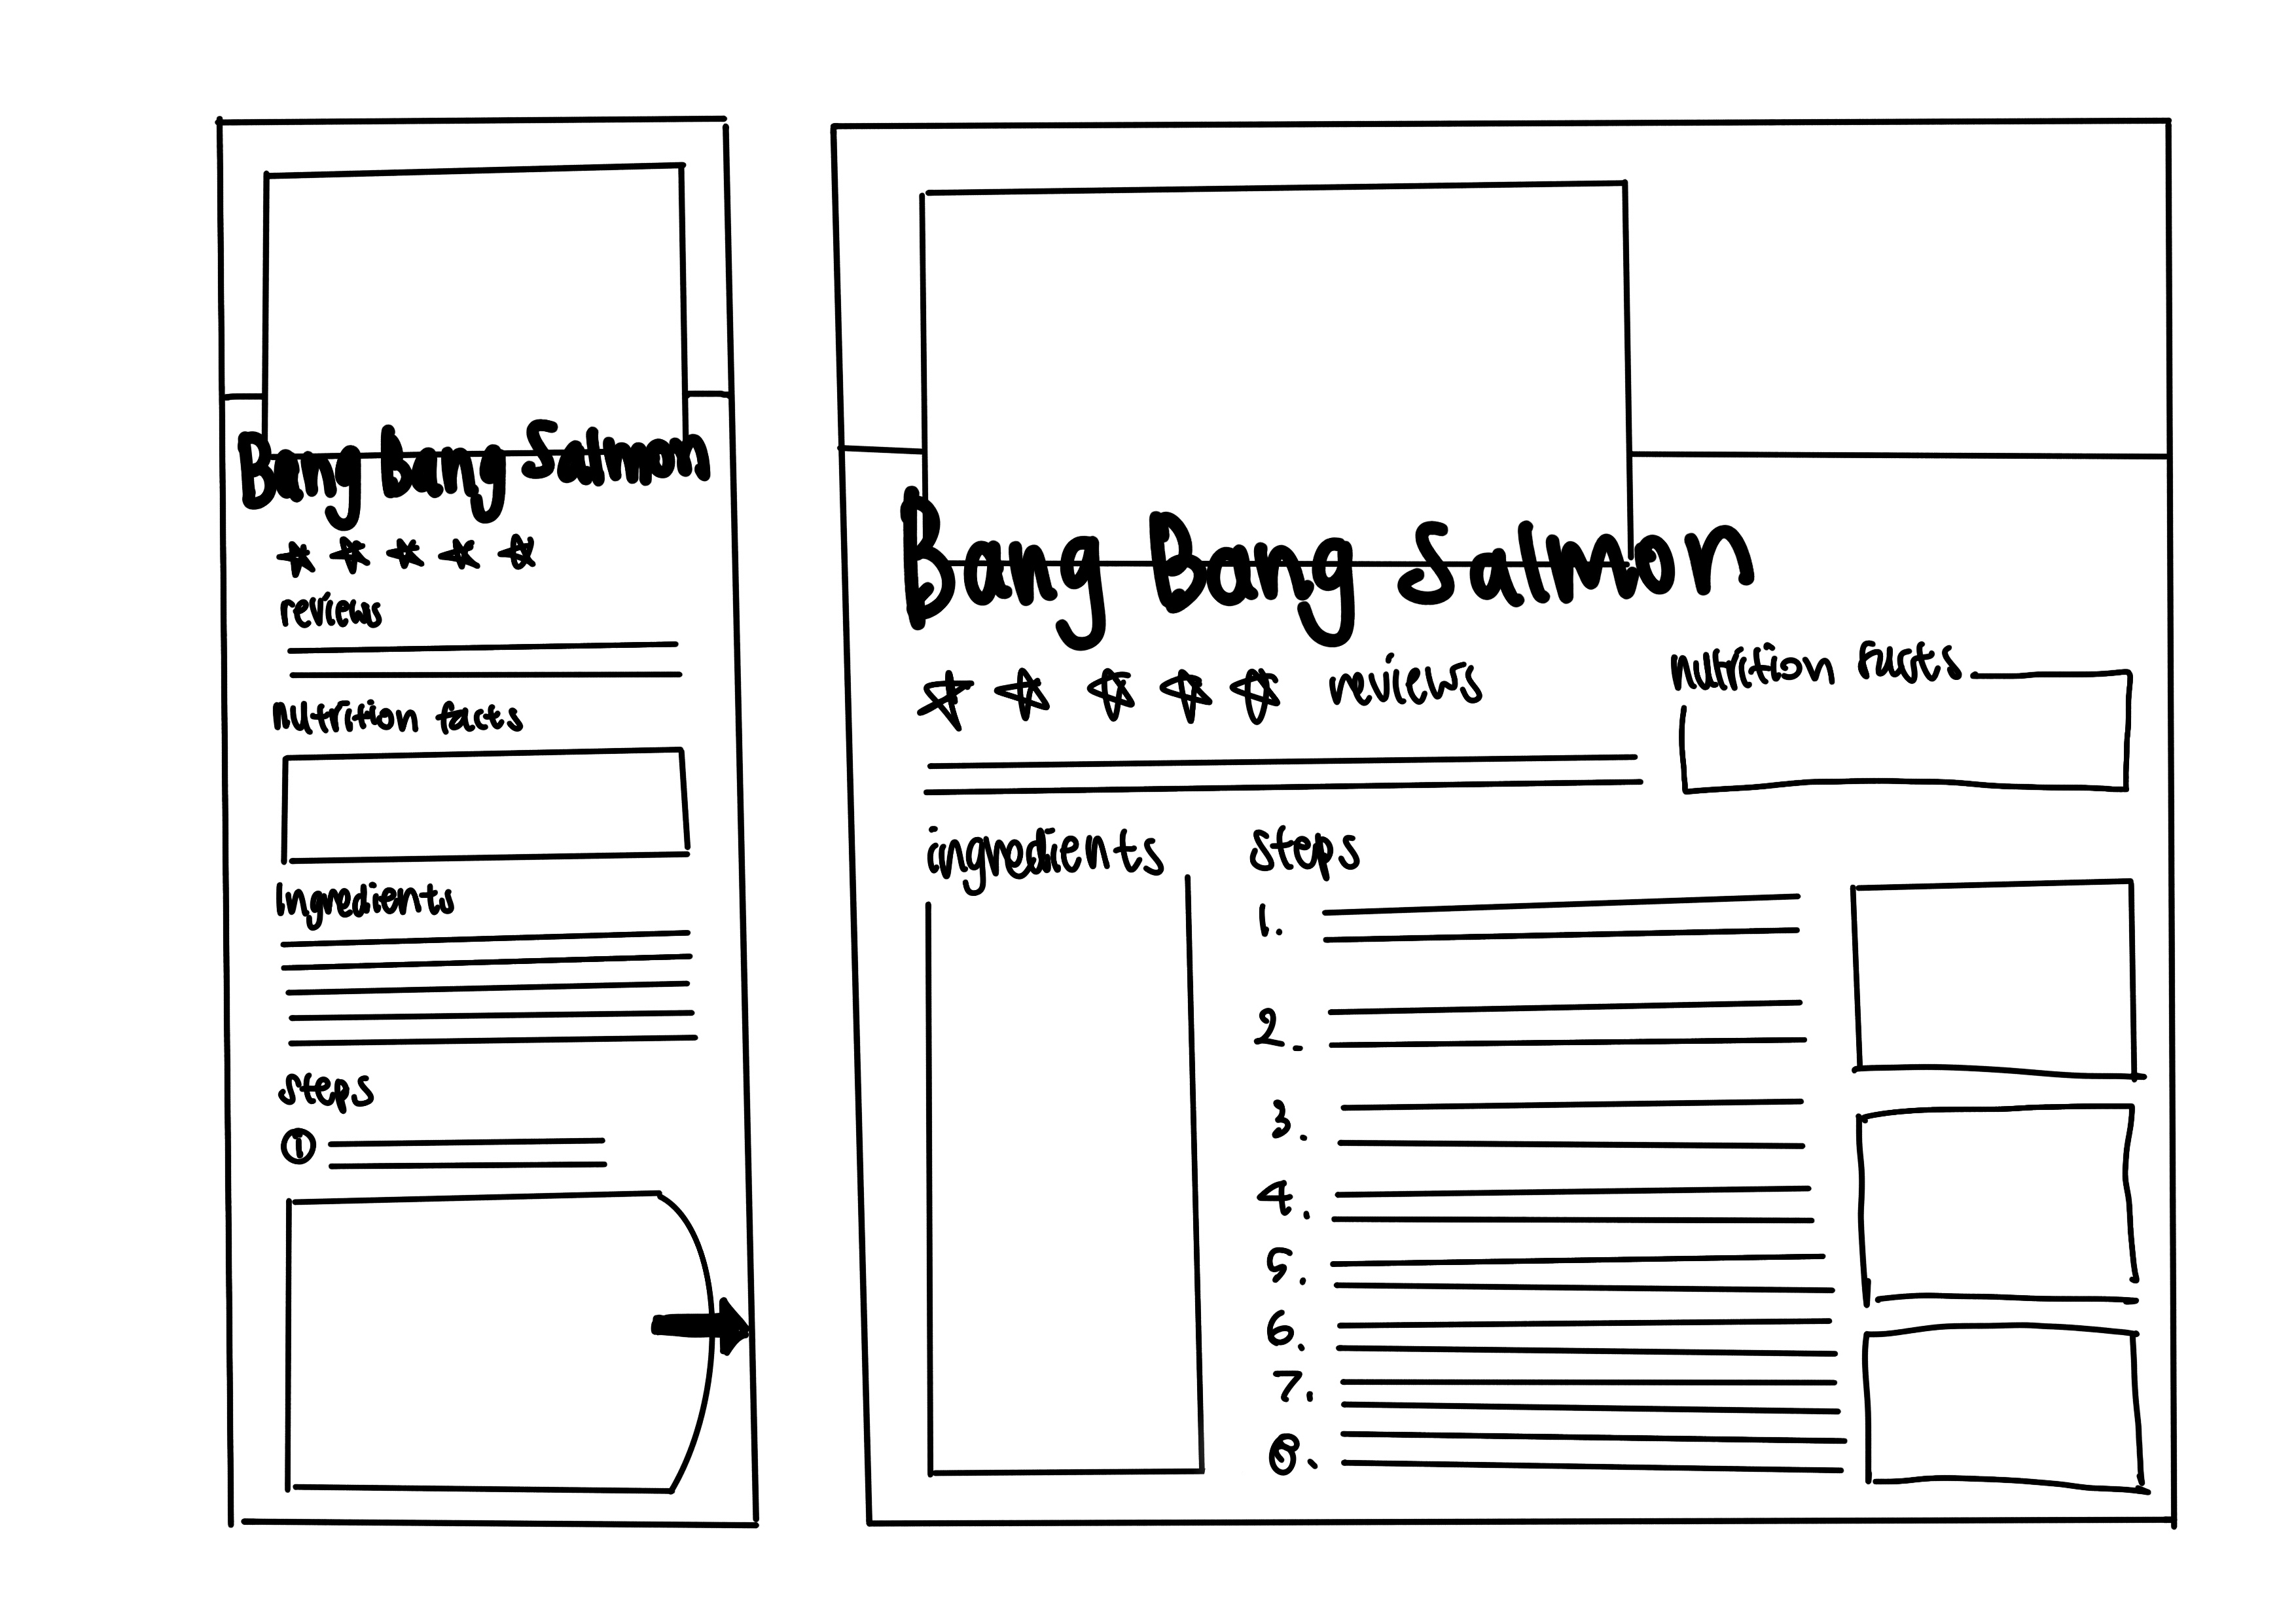 Bang bang Salmon
reviews
nutrition facts
Ingredients
steps
1
Bang Bang Salmon
reviews
nutrition facts
ingredients
steps
1.
2.
3.
4.
5.
6.
7.
8.